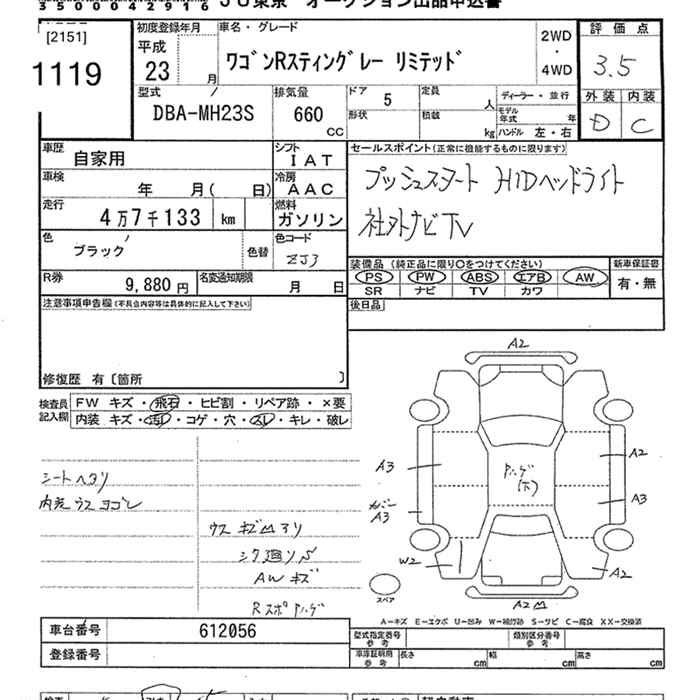 35000042916 JU東京 オークション出品申込書
[2151]
1119
初度登録年月
平成
23 月
車名・グレード
ワゴンRスティングレー リミテッド
2WD
・
4WD
評価点
3.5
外装 内装
D C
型式
DBA-MH23S
排気量
660
CC
ドア 5
形状
定員 人
積載 kg
ディーラー・並行
モデル年式 年
ハンドル 左・右
車歴 自家用
シフト IAT
車検 年 月( 日)
冷房 AAC
走行 4万7千133 km
燃料 ガソリン
色 ブラック
色替
色コード ZJ3
R券 9,880円
名変通知期限 月 日
セールスポイント(正常に機能するものに限ります)
プッシュスタート HIDヘッドライト
社外ナビTV
装備品(純正品に限り○をつけてください)
新車保証書
PS PW ABS エアB AW
有・無
SR ナビ TV カワ
後日品
注意事項申告欄(不具合内容等は具体的に記入して下さい)
修復歴 有〔箇所 〕
検査員記入欄
FW キズ・飛石・ヒビ割・リペア跡・×要
内装 キズ・汚レ・コゲ・穴・スレ・キレ・破レ
シートヘタリ
内充ウスヨゴレ
ウスキズ凹アリ
AWキズ
A2
A3
A2
A3
A3
W2
A2
A2凹
スペア
A―キズ E―エクボ U―凹み W―補修跡 S―サビ C―腐食 XX―交換済
車台番号 612056
登録番号
型式指定番号 参考
類別区分番号 参考
車庫証明用 参考
長さ cm
幅 cm
高さ cm